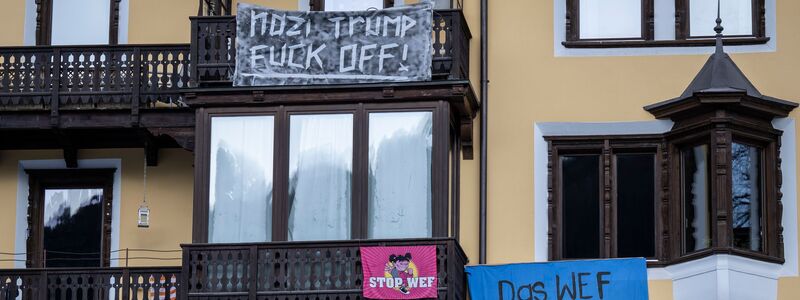 NOZI TRUMP
FUCK OFF!
STOP WEF
Das WEF